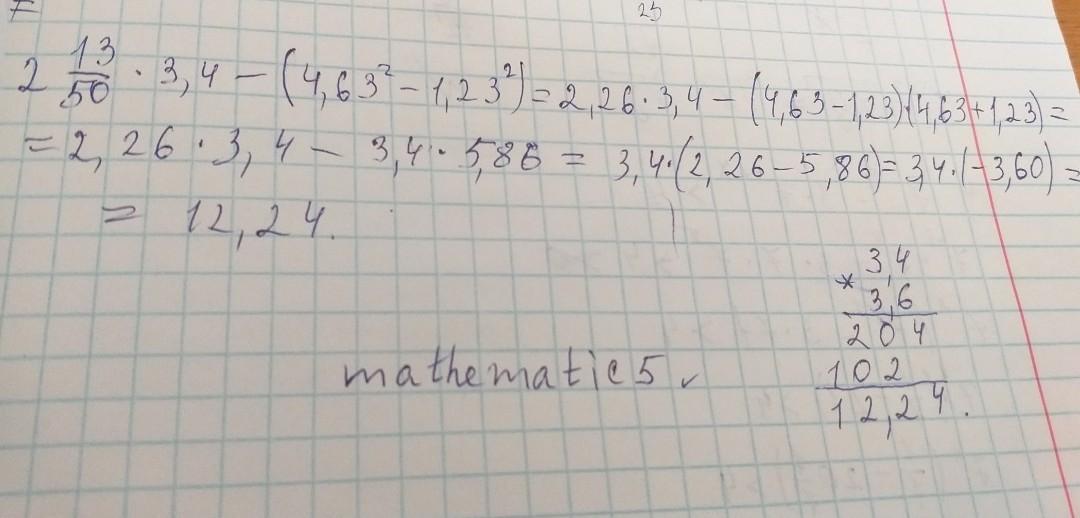 25
2 13/50 · 3,4 − (4,63² − 1,23²) = 2,26 · 3,4 − (4,63 − 1,23)(4,63 + 1,23) =
= 2,26 · 3,4 − 3,4 · 5,86 = 3,4 · (2,26 − 5,86) = 3,4 · (−3,60) =
= 12,24.
3,4
* 3,6
204
102
12,24.
mathematic5